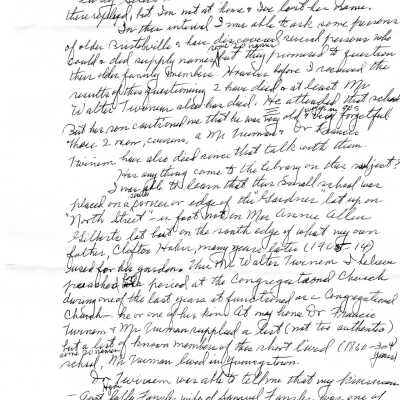 they replied, but I'm not at home & I've lost her name.
In this interval I was able to ask some persons
of older Bristolville & have discovered several persons who
could & did supply names, but they promised to question
their older family members. However before I received the
results of this questioning 2 have died or at least Mr
Walter Twinem also has died. He attended that school
But his son cautioned me that he was very old & very forgetful
These 2 men, cousins, a Mr Truman & Dr Francis
Twinem have also died since that talk with them.
Has anything come to the library on this subject?
I was able to learn that this small school was
placed on a corner or edge of the "Gardner" lot up on
"North Street" - in fact not on Mrs Annie Allen
Gilberts lot but on the south edge of what my own
father, Clifton Hahn, many years later (1905-14)
used for his gardens. This Mr Walter Twinem I believe
preached a period at the Congregational Church
during one of the last years it functioned as a Congregational
Church - he or one of his kin. At my home Dr. Francis
Twinem & Mr Truman supplied a list (not too authentic)
but a list of known members of this short lived (1860-
years)
school, Mr Truman lived in Youngstown.
Dr Twinem was able to tell me that my kinswoman
wife of Samuel was one of